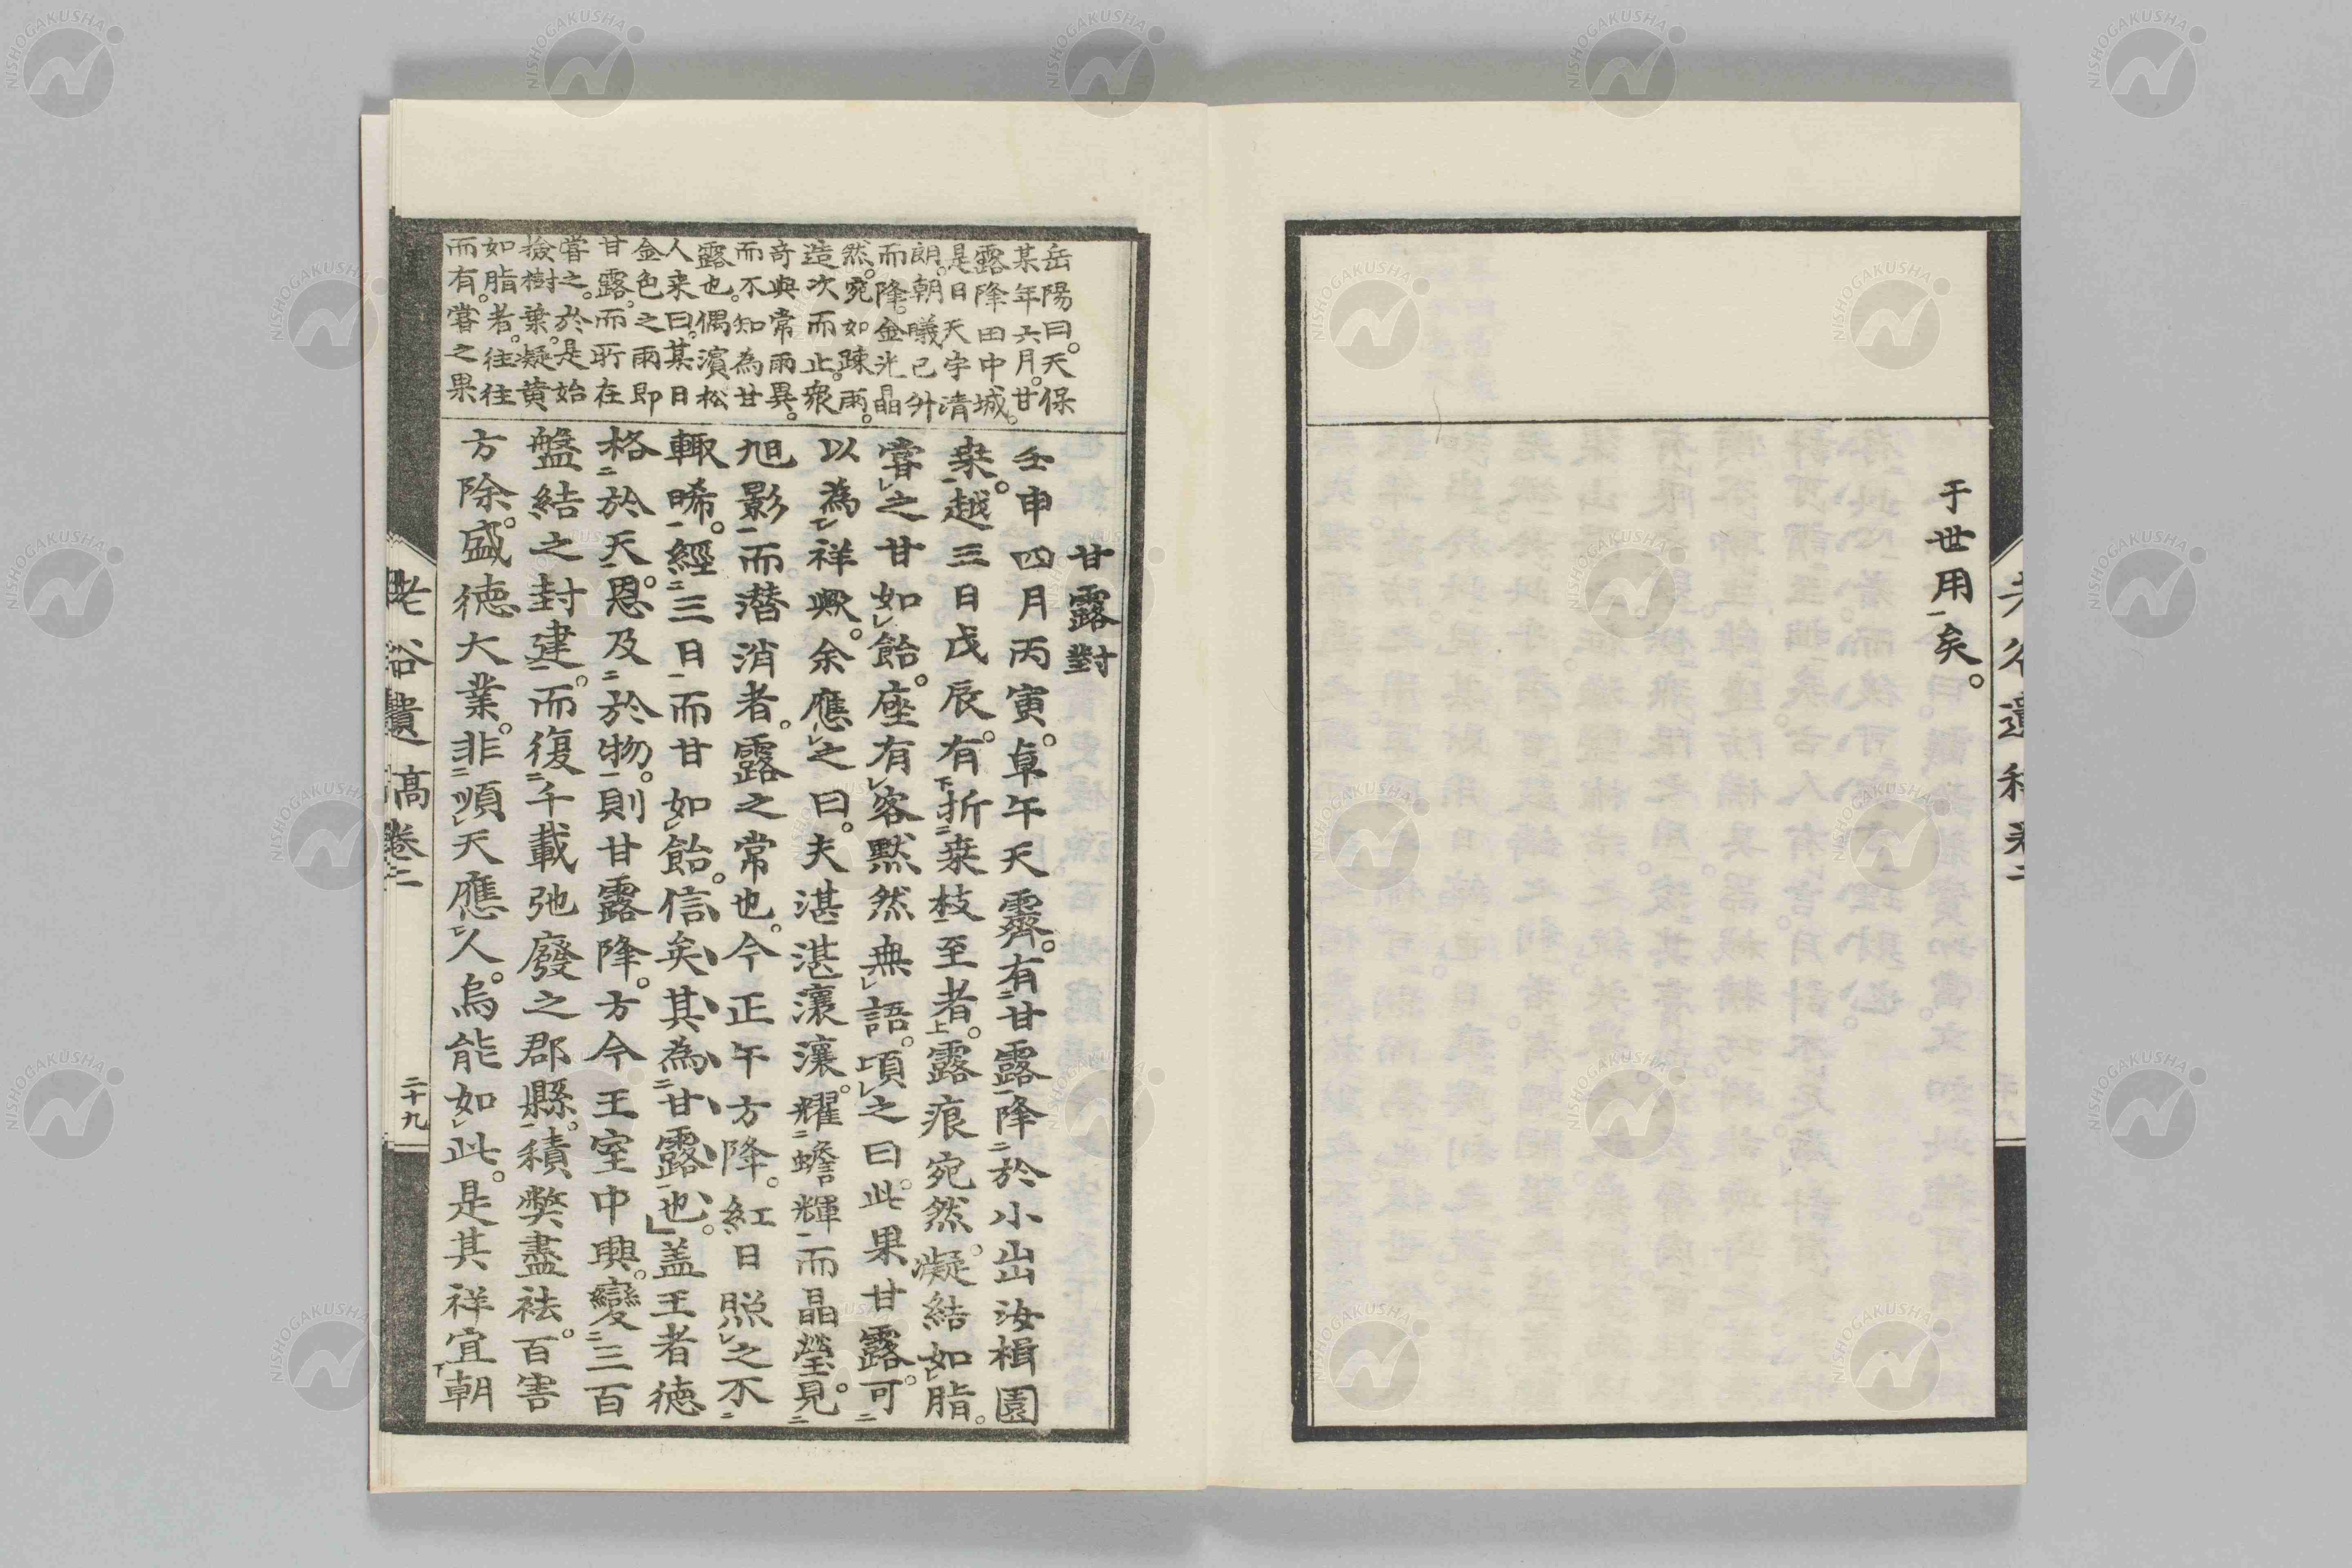 于世用矣。
岳陽曰。天保
某年六月。甘
露降田中城。
是日天宇清
朗。朝曦已升
而降。金光晶
然。宛如疎雨。
造次而止。衆
奇與常雨異。
而不知為甘
露也。偶濱松
人来曰。某日
金色之雨即
甘露。而所在
嘗之。於是始
撿樹葉。凝黄
如脂者。往往
而有。嘗之果
甘露對
壬申四月丙寅。卓午天霽。有甘露降於小出汝楫園
桒。越三日戊辰。有折桒枝至者。露痕宛然。凝結如脂。
嘗之甘如飴。座有客黙然無語。頃之曰。此果甘露。可
以為祥歟。余應之曰。夫湛湛瀼瀼。耀蟾輝而晶瑩。見
旭影而潜消者。露之常也。今正午方降。紅日照之不
輙晞。經三日而甘如飴。信矣其為甘露也。盖王者徳
格於天。恩及於物。則甘露降。方今王室中興。變三百
盤結之封建。而復千載弛廢之郡縣。積弊盡祛。百害
方除。盛徳大業。非順天應人。烏能如此。是其祥宜朝
卷二
二十九